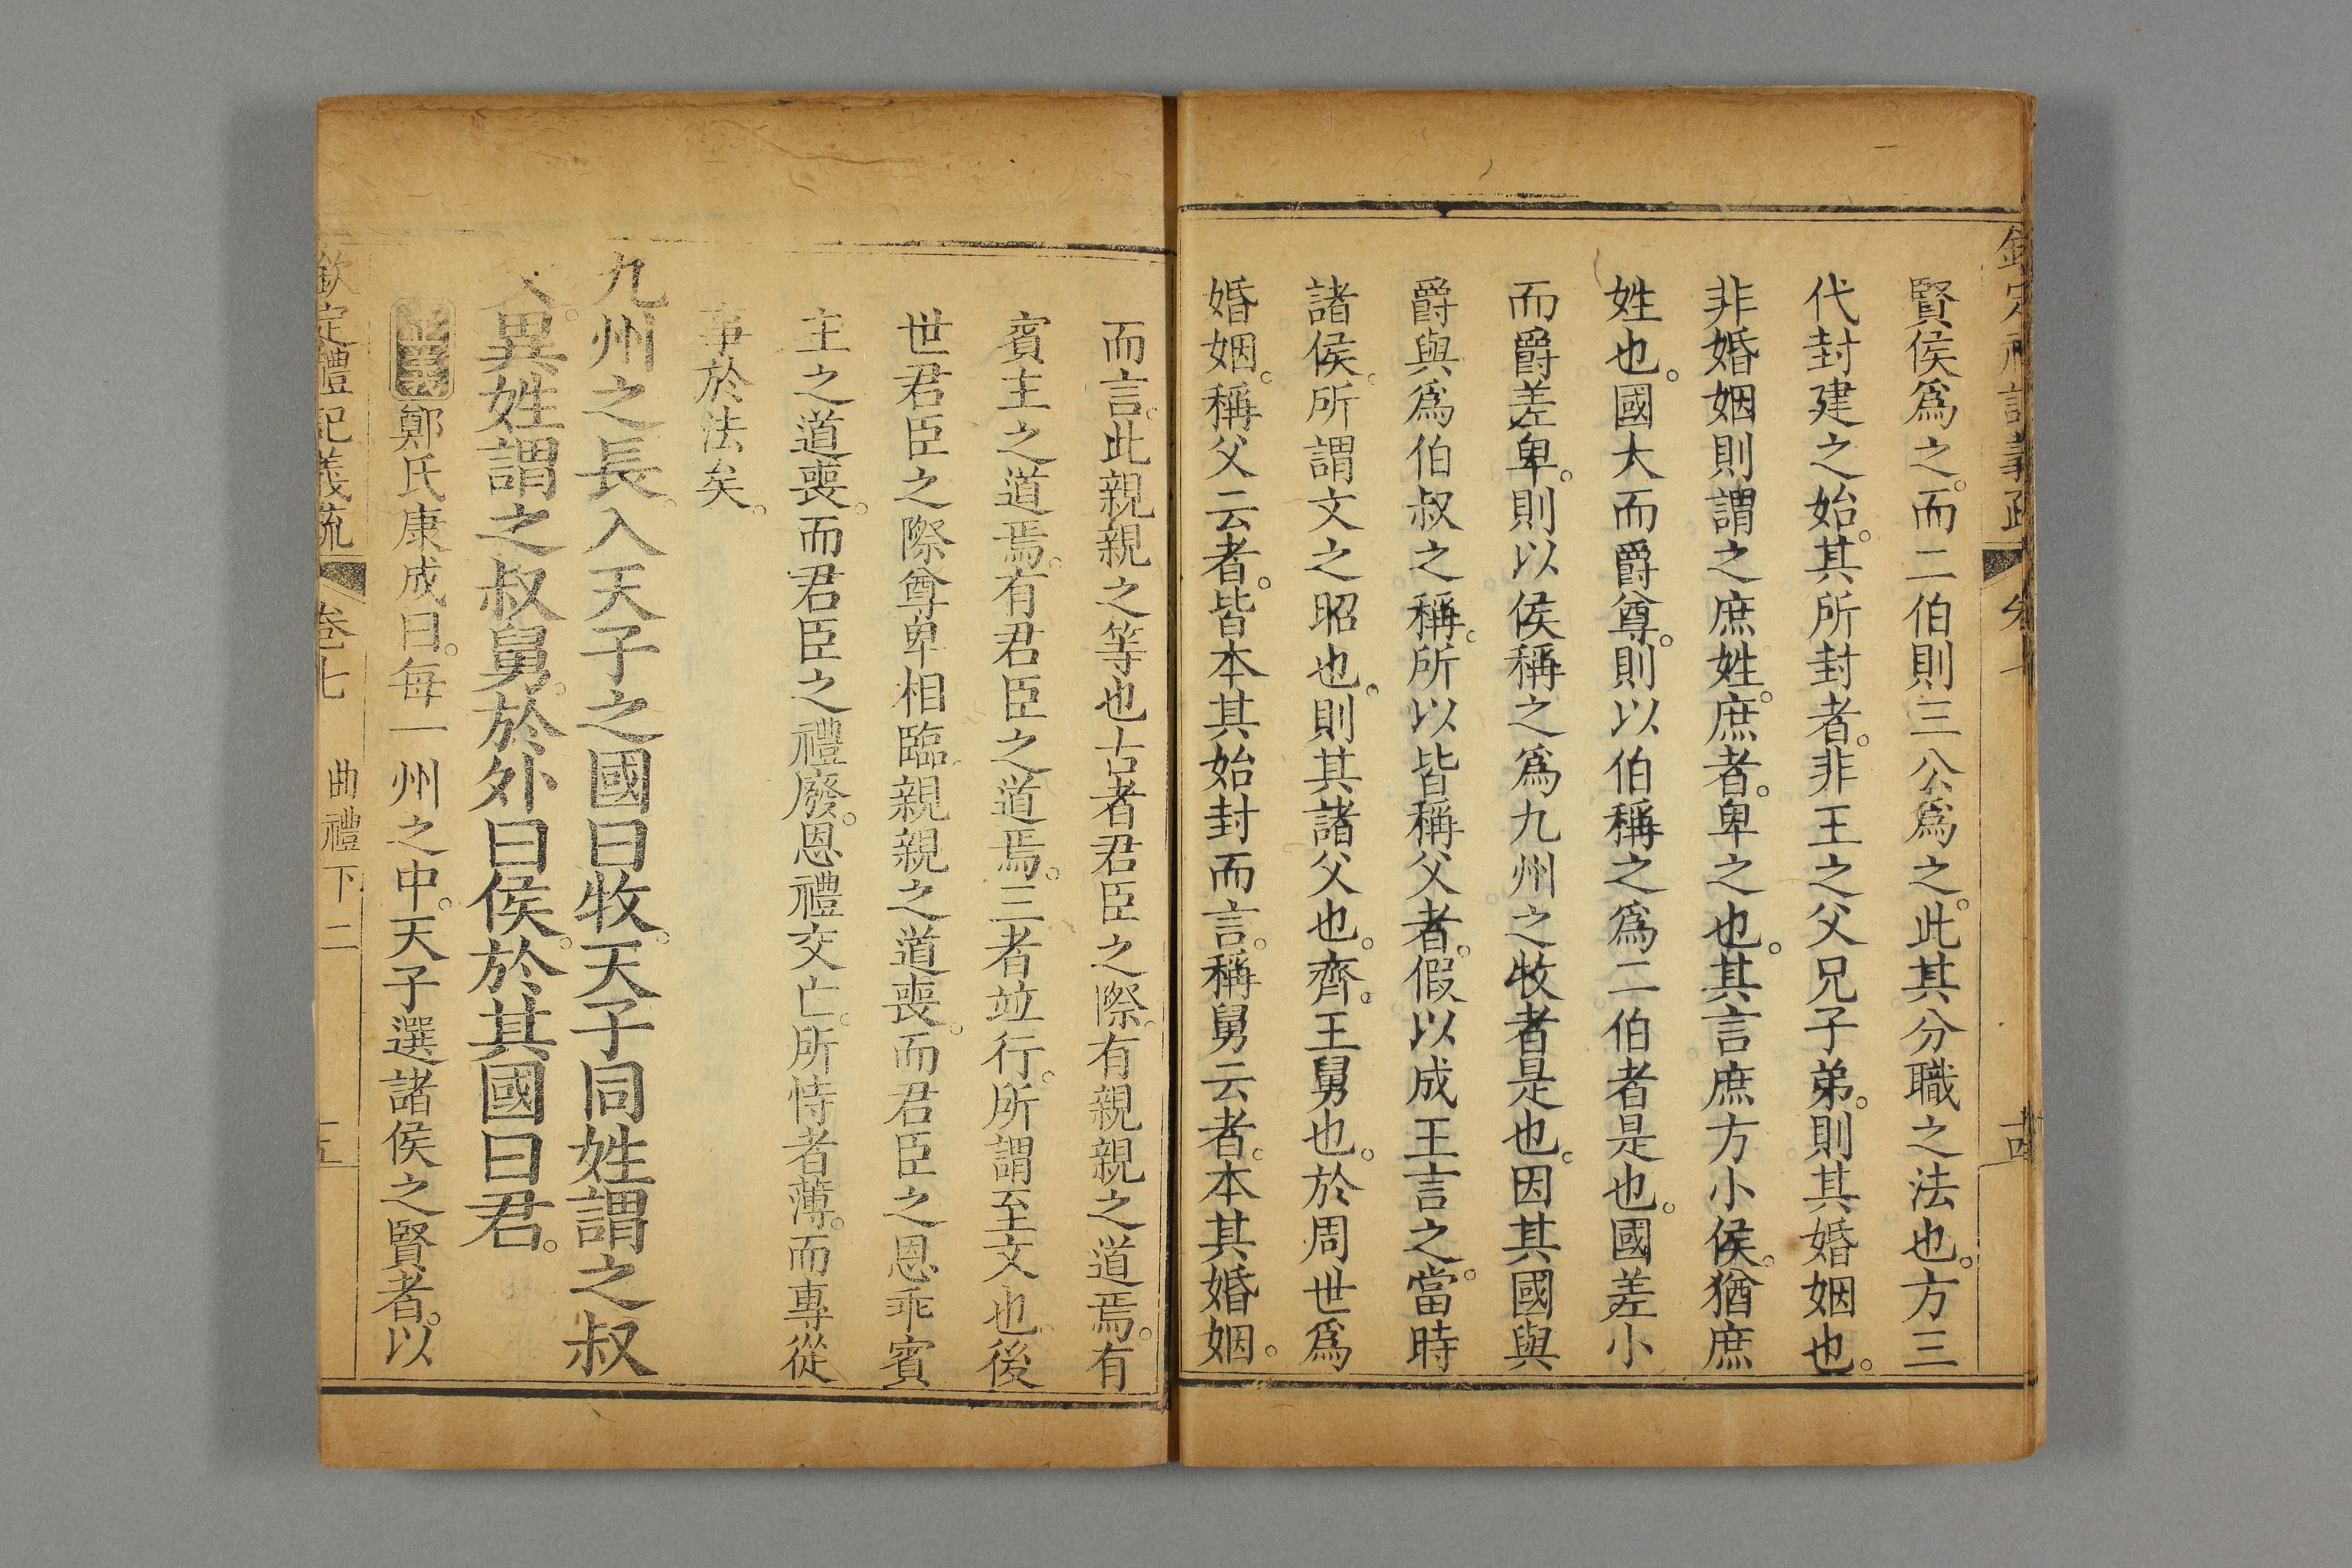 賢侯爲之。而二伯則三公爲之。此其分職之法也。方三
代封建之始。其所封者。非王之父兄子弟。則其婚姻也。
非婚姻則謂之庶姓。庶者。卑之也。其言庶方小侯。猶庶
姓也。國大而爵尊。則以伯稱之爲二伯者是也。國差小
而爵差卑。則以侯稱之爲九州之牧者是也。因其國與
爵與爲伯叔之稱。所以皆稱父者。假以成王言之。當時
諸侯。所謂文之昭也。則其諸父也。齊。王舅也。於周世爲
婚姻。稱父云者。皆本其始封而言。稱舅云者。本其婚姻。
而言。此親親之等也古者君臣之際。有親親之道焉。有
賓主之道焉。有君臣之道焉。三者竝行。所謂至文也。後
世君臣之際尊卑相臨。親親之道喪。而君臣之恩乖賓
主之道喪。而君臣之禮廢。恩禮交亡。所恃者薄。而專從
事於法矣。
九州之長。入天子之國曰牧。天子同姓謂之叔
異姓謂之叔舅。於外曰侯。於其國曰君。
鄭氏康成曰。每一州之中。天子選諸侯之賢者。以
欽定禮記義疏 卷七 曲禮下二